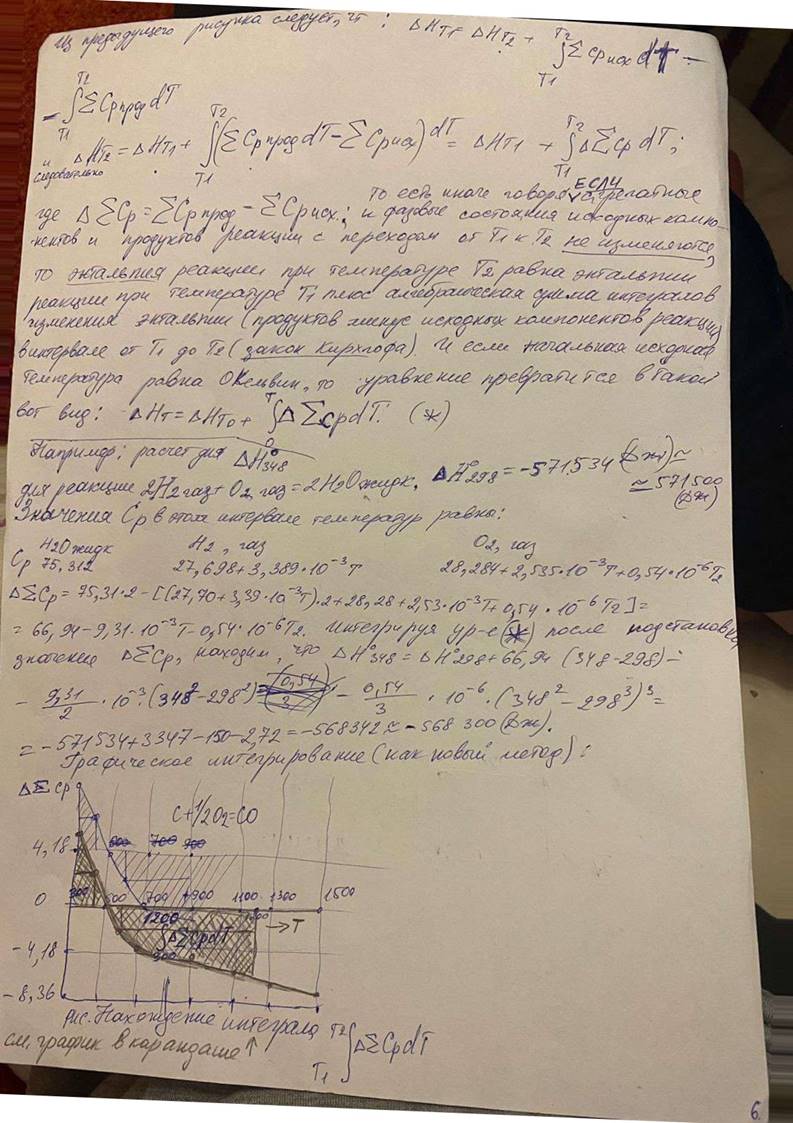 Из предыдущего рисунка следует, чт : ΔHT1 = ΔHT2 + T2∫T1 ΣCp исх dT −
− T2∫T1 ΣCp прод dT
и следовательно ΔHT2 = ΔHT1 + T2∫T1 (ΣCp прод dT − ΣCp исх) dT = ΔHT1 + T2∫T1 ΔΣCp dT;
То есть иначе говоря, если агрегатные
где ΔΣCp = ΣCp прод − ΣCp исх.; и фазовые состояния исходных компо-
нентов и продуктов реакции с переходом от T1 к T2 не изменяются,
то энтальпия реакции при температуре T2 равна энтальпии
реакции при температуре T1 плюс алгебраическая сумма интегралов
изменения энтальпии (продуктов минус исходных компонентов реакции)
в интервале от T1 до T2 (закон Кирхгофа). И если начальная исходная
температура равна 0 Кельвин, то уравнение превратится в такой
вот вид: ΔHT = ΔHT0 + T∫0 ΔΣCp dT. (*)
Например: расчет для ΔH°348
для реакции 2H2 газ + O2 газ = 2H2O жидк, ΔH°298 = -571534 (Дж) ≈
≈ 571500 (Дж)
Значения Cp в этом интервале температур равны:
H2O жидк H2, газ O2, газ
Cp 75,312 27,698+3,389·10⁻³T 28,284+2,535·10⁻³T+0,54·10⁻⁶T2
ΔΣCp = 75,31·2 − [(27,70+3,39·10⁻³T)·2+28,28+2,53·10⁻³T+0,54·10⁻⁶T2] =
= 66,94−9,31·10⁻³T−0,54·10⁻⁶T2. Интегрируя ур-е (*) после подстановки
значений ΔΣCp, находим, что ΔH°348 = ΔH°298+66,94 (348−298) −
− 9,31/2 · 10⁻³·(348²−298²) − 0,54/3 · 10⁻⁶·(348²−298³)³ =
= −571534+3347−150−2,72 = −568342 ≈ −568300 (Дж).
Графическое интегрирование (как новый метод):
ΔΣ Cp
C+1/2O2=CO
4,18 600 700 900
0 300 500 700 900 1100 1300 1500
1200
→T
∫ΔΣCpdT
−4,18 300
−8,36
рис. Нахождение интеграла T2∫T1 ΔΣCpdT
см. график в карандаше ↑
6.